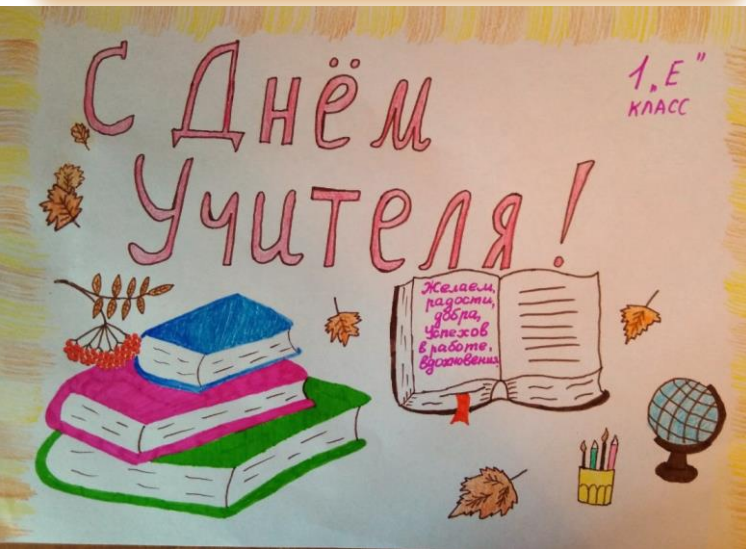 С Днём
Учителя!
1 „Е"
КЛАСС
Желаем,
радости,
добра,
успехов
в работе,
вдохновения